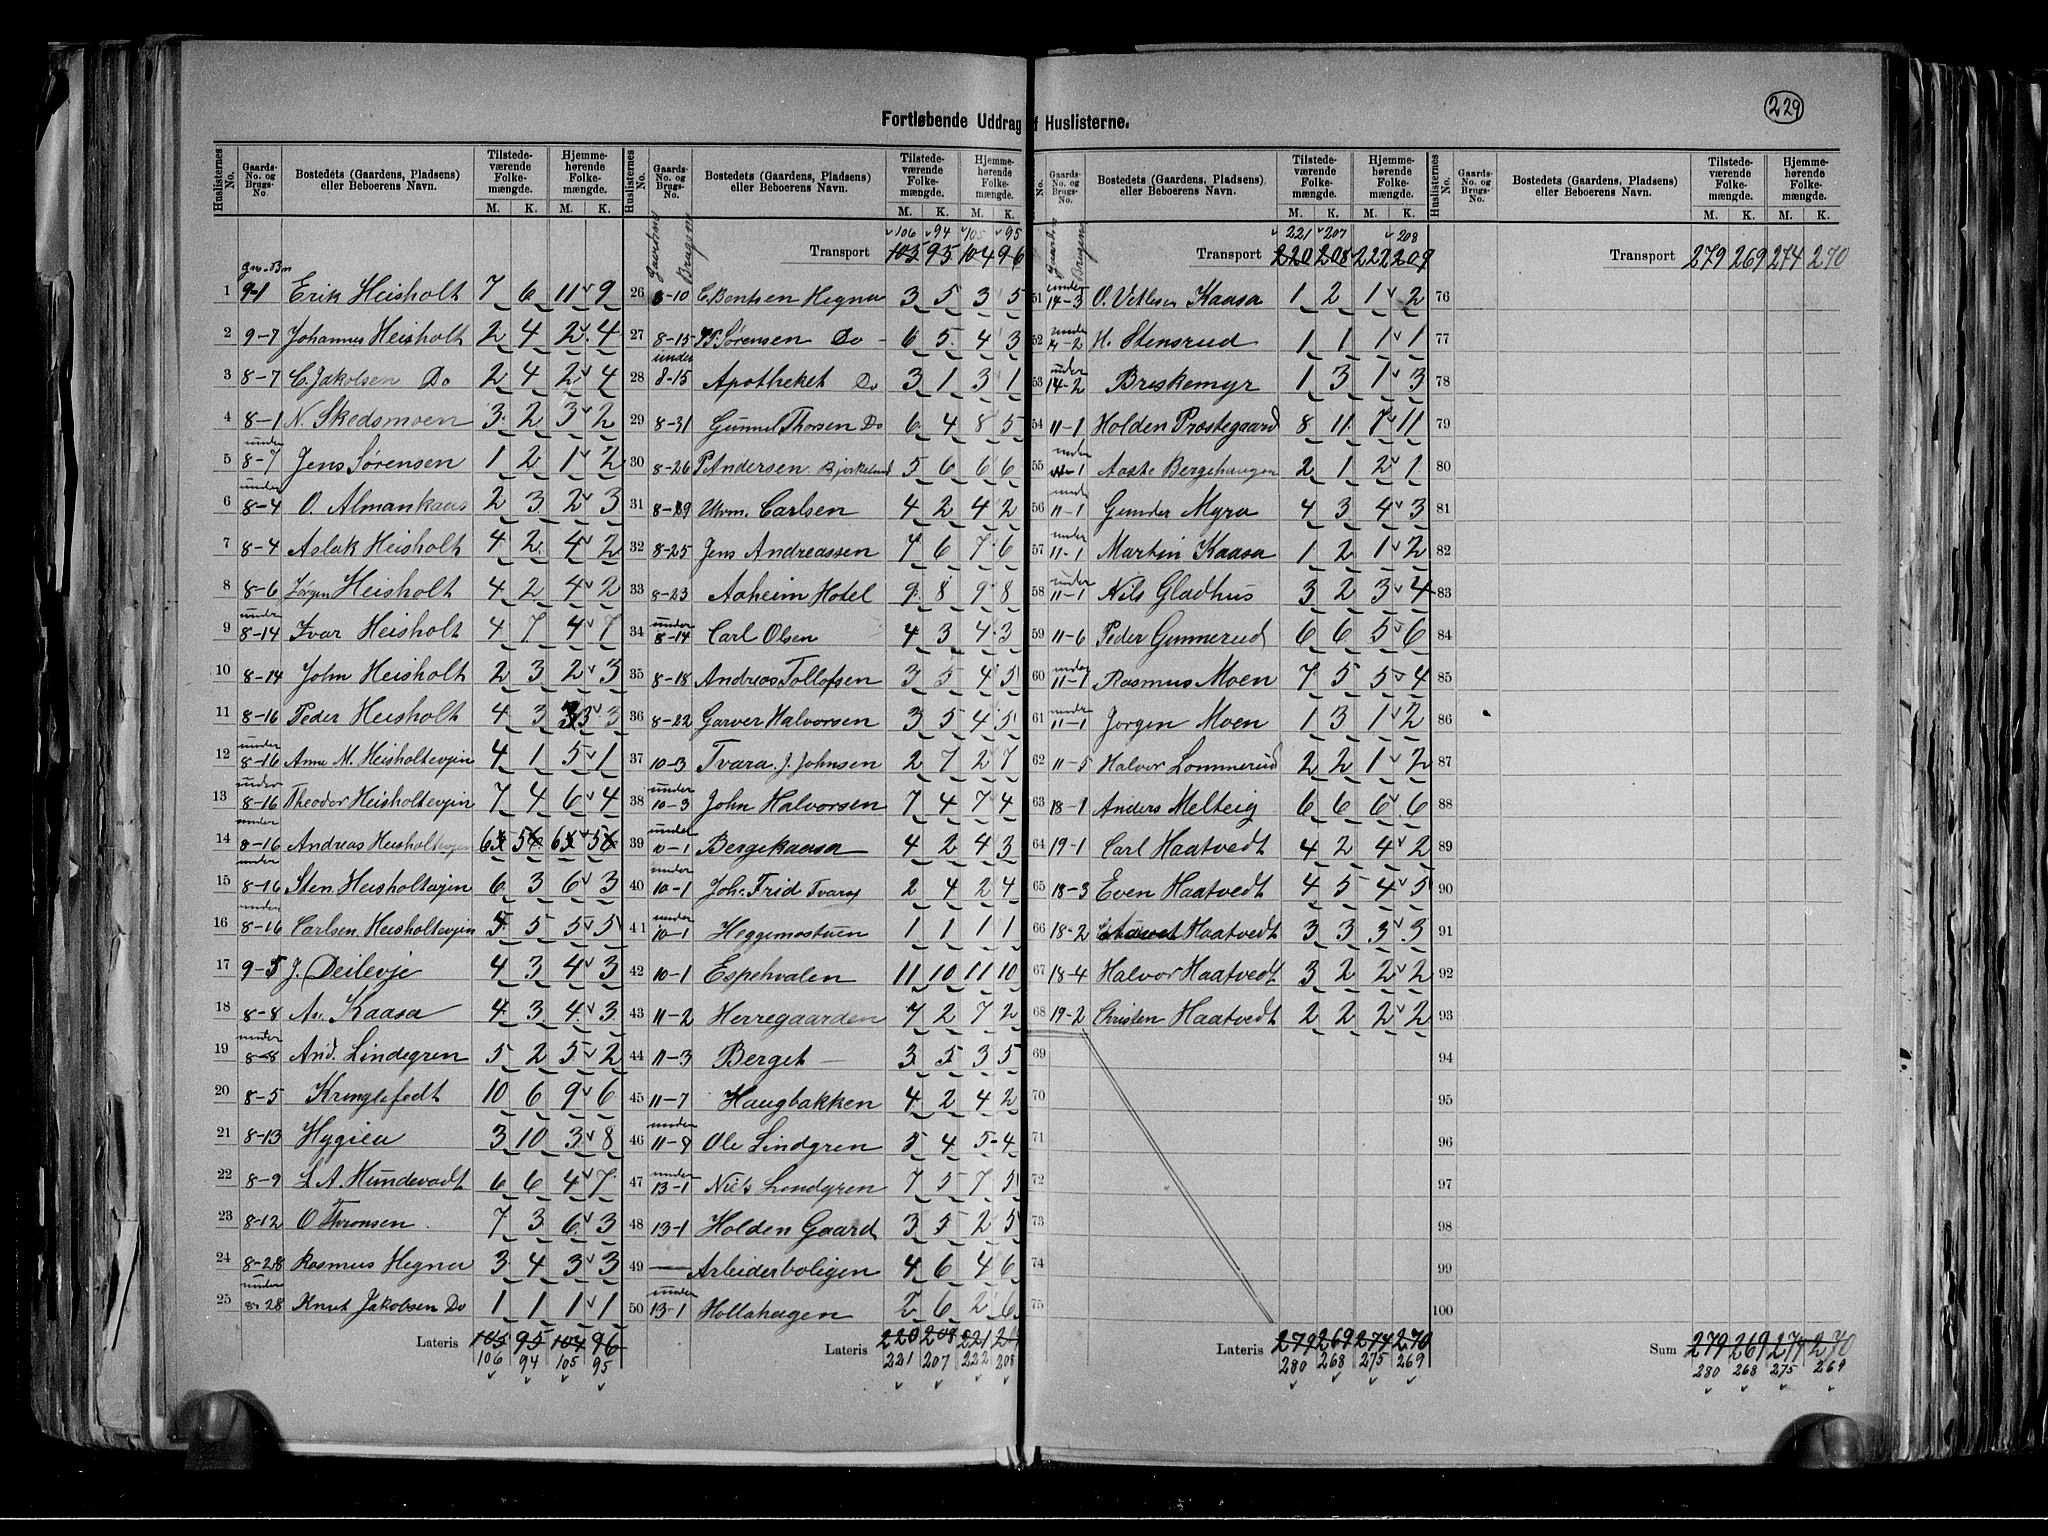 229
Fortløbende Uddrag af Huslisterne.
Huslisternes No. Gaards-No. og Brugs-No. Bostedets (Gaardens, Pladsens) eller Beboerens Navn. Tilstedeværende Folkemængde. Hjemmehørende Folkemængde.
M. K. M. K.
gno. Bn
1 9-1 Erik Heisholt 7 6 11 9
2 9-7 Johannes Heisholt 2 4 2 4
3 8-7 C. Jakobsen Do 2 4 2 4
4 8-1 N. Skedsmoen 3 2 3 2
5 under 8-7 Jens Sørensen 1 2 1 2
6 under 8-4 O. Almankaas 2 3 2 3
7 8-4 Aslak Heisholt 4 2 4 2
8 8-6 Jørgen Heisholt 4 2 4 2
9 under 8-14 Ivar Heisholt 4 7 4 7
10 8-14 John Heisholt 2 3 2 3
11 8-16 Peder Heisholt 4 3 3 3
12 under 8-16 Anne M. Heisholtevjen 4 1 5 1
13 under 8-16 Theodor Heisholtevjen 7 4 6 4
14 under 8-16 Andreas Heisholtevjen 6 5 6 5
15 under 8-16 Sten Heisholtevjen 6 3 6 3
16 under 8-16 Carlsen Heisholtevjen 5 5 5 5
17 9-5 J. Deilevje 4 3 4 3
18 8-8 An. Kaasa 4 3 4 3
19 under 8-8 And. Lindegren 5 2 5 2
20 8-5 Kringlefedt 10 6 9 6
21 8-13 Hygiea 3 10 3 8
22 8-9 L A. Hundevadt 6 6 4 7
23 8-12 O Thronsen 7 3 6 3
24 8-28 Rasmus Hegna 3 4 3 3
25 under 8-28 Knut Jakobsen Do 1 1 1 1
Lateris 105 95 104 96
106 94 105 95
Huslisternes No. Gaards-No. og Brugs-No. Bostedets (Gaardens, Pladsens) eller Beboerens Navn. Tilstedeværende Folkemængde. Hjemmehørende Folkemængde.
M. K. M. K.
Gaardens Brugens
106 94 105 95
Transport 105 95 104 96
26 8-10 C. Bentsen Hegna 3 5 3 5
27 8-15 Sørensen Do 6 5 4 3
28 under 8-15 Apotheket Do 3 1 3 1
29 8-31 Gunnel Thorsen Do 6 4 8 5
30 8-26 P Andersen Bjerkelund 5 6 6 6
31 8-19 Uhrm. Carlsen 4 2 4 2
32 8-25 Jens Andreassen 7 6 7 6
33 8-23 Aaheim Hotel 9 8 9 8
34 under 8-14 Carl Olsen 4 3 4 3
35 8-18 Andreas Tollofsen 3 5 4 5
36 8-22 Garver Halvorsen 3 5 4 5
37 10-3 Tvara. J. Johnsen 2 7 2 7
38 under 10-3 John Halvorsen 7 4 7 4
39 under 10-1 Bergekaasa 4 2 4 3
40 under 10-1 Joh. Frid Tvara 2 4 2 4
41 under 10-1 Heggemostuen 1 1 1 1
42 10-1 Espehvalen 11 10 11 10
43 11-2 Herregaarden 7 2 7 2
44 11-3 Berget 3 5 3 5
45 11-7 Haugbakken 4 2 4 2
46 under 11-8 Ole Lindgren 5 4 5 4
47 under 13-1 Niels Lindgren 7 5 7 5
48 13-1 Holden Gaard 3 5 2 5
49 Arbeiderboligen 4 6 4 6
50 under 13-1 Hollahagen 2 6 2 6
Lateris 220 208 221
221 207 222 208
No. Gaards-No. og Brugs-No. Bostedets (Gaardens, Pladsens) eller Beboerens Navn. Tilstedeværende Folkemængde. Hjemmehørende Folkemængde.
M. K. M. K.
Gaarden Brugens
221 207 208
Transport 220 208 222 209
51 under 14-3 O. Vetlesen Kaasa 1 2 1 2
52 under 14-2 H. Stensrud 1 1 1 1
53 under 14-2 Breskemyr 1 3 1 3
54 11-1 Holden Præstegaard 8 11 7 11
55 under 11-1 Aaste Bergehaugen 2 1 2 1
56 under 11-1 Gunder Myra 4 3 4 3
57 under 11-1 Martin Kaasa 1 2 1 2
58 under 11-1 Nils Gladhus 3 2 3 4
59 11-6 Peder Gunnerud 6 6 5 6
60 under 11-1 Rasmus Moen 7 5 5 4
61 under 11-1 Jørgen Moen 1 3 1 2
62 11-5 Halvor Lommerud 2 2 1 2
63 18-1 Anders Melteig 6 6 6 6
64 19-1 Carl Haatvedt 4 2 4 2
65 18-3 Even Haatvedt 4 5 4 5
66 18-2 Haatvedt 3 3 3 3
67 18-4 Halvor Haatvedt 3 2 2 2
68 19-2 Christen Haatvedt 2 2 2 2
69
70
71
72
73
74
75
Lateris 279 269 274 270
280 268 275 269
Huslisternes No. Gaards-No. og Brugs-No. Bostedets (Gaardens, Pladsens) eller Beboerens Navn. Tilstedeværende Folkemængde. Hjemmehørende Folkemængde.
M. K. M. K.
Transport 279 269 274 270
76
77
78
79
80
81
82
83
84
85
86
87
88
89
90
91
92
93
94
95
96
97
98
99
100
Sum 279 269 274 270
280 268 275 269